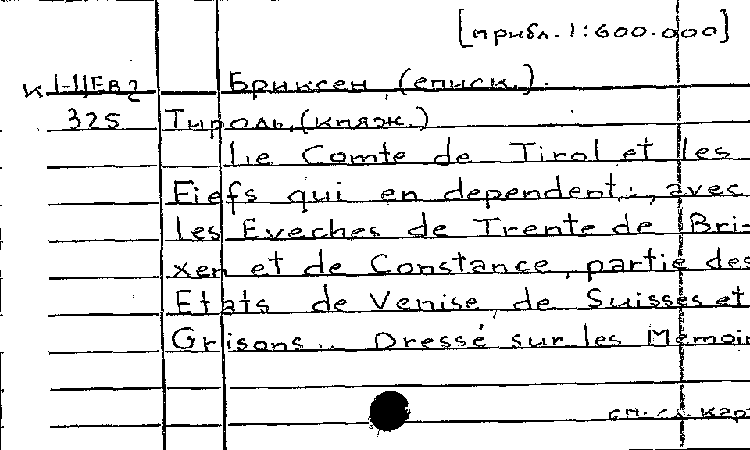 [прибл. 1:600.000]
Бриксен (еписк.).
325 Тироль (княж.)
Le Comte de Tirol et les
Fiefs qui en dependent, avec
les Eveches de Trente de Bri-
xen et de Constance, partie des
Etats de Venise, de Suisses et
Grisons. Dressé sur les Memoir
см. сл. кар